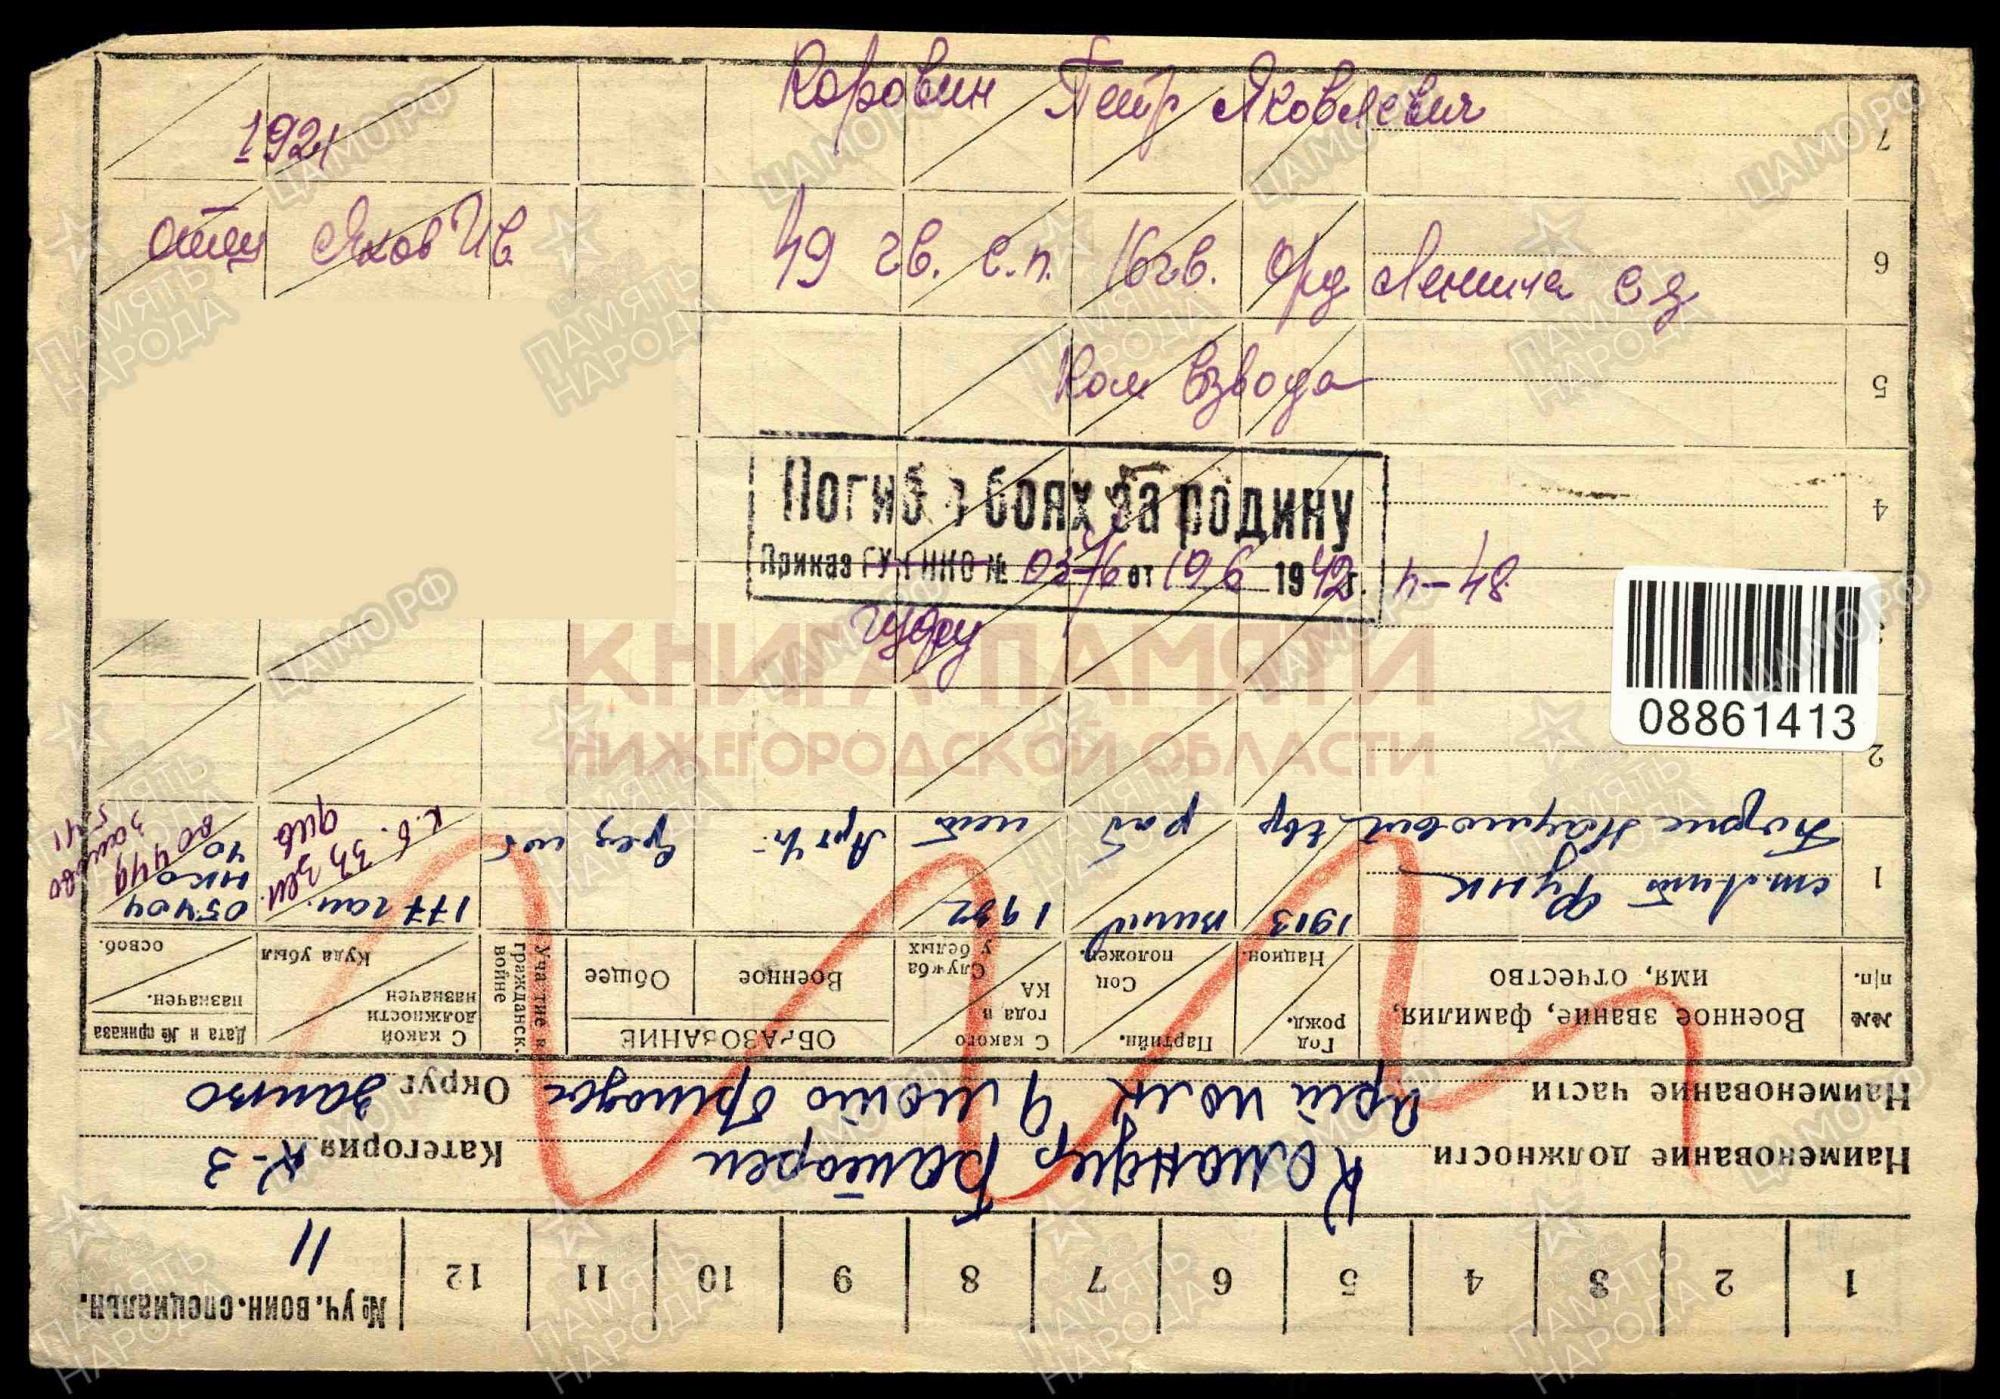 Коровин Петр Яковлевич
1921
отец Яков Ив
49 гв. с.п. 16 гв. Орд Ленина с д
Ком взвода
Погиб в боях за родину
Приказ ГУФ НКО № 0376 от 19 6 1942 г. п-48
гуфу
08861413
КНИГА ПАМЯТИ
НИЖЕГОРОДСКОЙ ОБЛАСТИ
ПАМЯТЬ НАРОДА
ЦАМО.РФ
№ уч. воин. специальн. 11
1 2 3 4 5 6 7 8 9 10 11 12
Наименование должности Командир Батареи Категория К-3
Наименование части Арт полк 9 мото бригады Округ Запво
№№ п/п.
Военное звание, фамилия, имя, отчество
Год рожд. Национ.
Партийн. Соц положен.
С какого года в КА Служба у белых
ОБРАЗОВАНИЕ
Военное Общее
Участие в гражданск. войне
С какой должности назначен Куда убыл
Дата и № приказа назначен. освоб.
1 ст. Лит Функ
Борис Наумович
1913 евр
раб
1932 нет
Арт
нет
177 гап.
05404 НКО 40
2
3
4
5
6
7